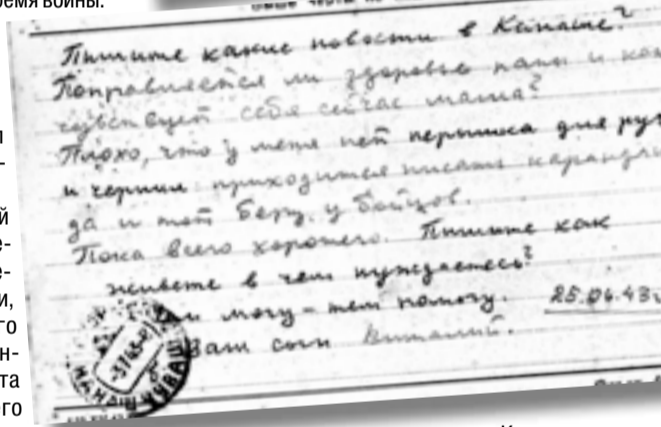 ремя войны.
Пишите какие новости в Канаше?
Поправляется ли здоровье папы и как
чувствует себя сейчас мама?
Плохо, что у меня нет перышка для руч
и чернил приходится писать каранда
да и тот беру у бойцов.
Пока всего хорошего. Пишите как
живете в чем нуждаетесь?
могу – тем помогу. 25.06.43г
Ваш сын Виталий.
КАНАШ ЧУВАШ
й
и,
го
н-
та
его